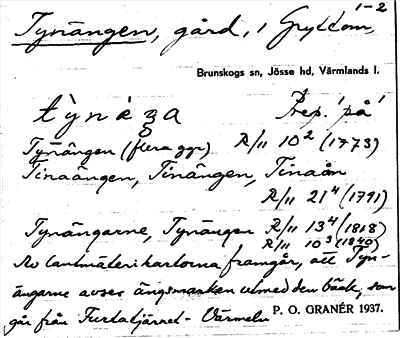 1-2
Tynängen, gård, i Gryttom,
Brunskogs sn, Jösse hd, Värmlands l.
Prep. 'på'
Tynängen (flera ggr) R/11 10² (1773)
Tinaängen, Tinängen, Tinaån
R/11 21⁴ (1791)
Tynängarne, Tynängen R/11 13⁴ (1818)
R/11 10³ (1840)
Av lantmäterikartorna framgår, att Tyn-
ängarne avser ängsmarken utmed den bäck, som
går från Furtatjärnet - Värmeln
P. O. GRANÉR 1937.